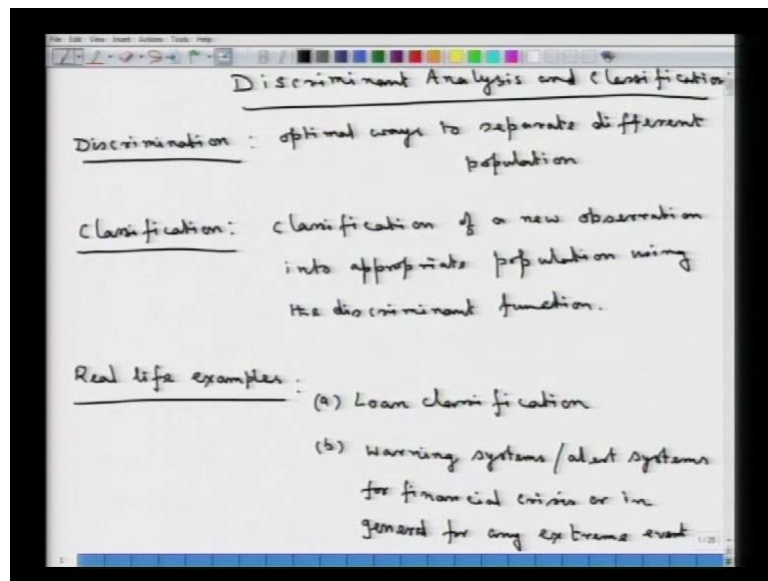 File Edit View Insert Actions Tools Help
Discriminant Analysis and Classification
Discrimination : optimal ways to separate different
population
Classification : Classification of a new observation
into appropriate population using
the discriminant function.
Real life examples :
(a) Loan classification
(b) Warning systems / alert systems
for financial crisis or in
general for any extreme event